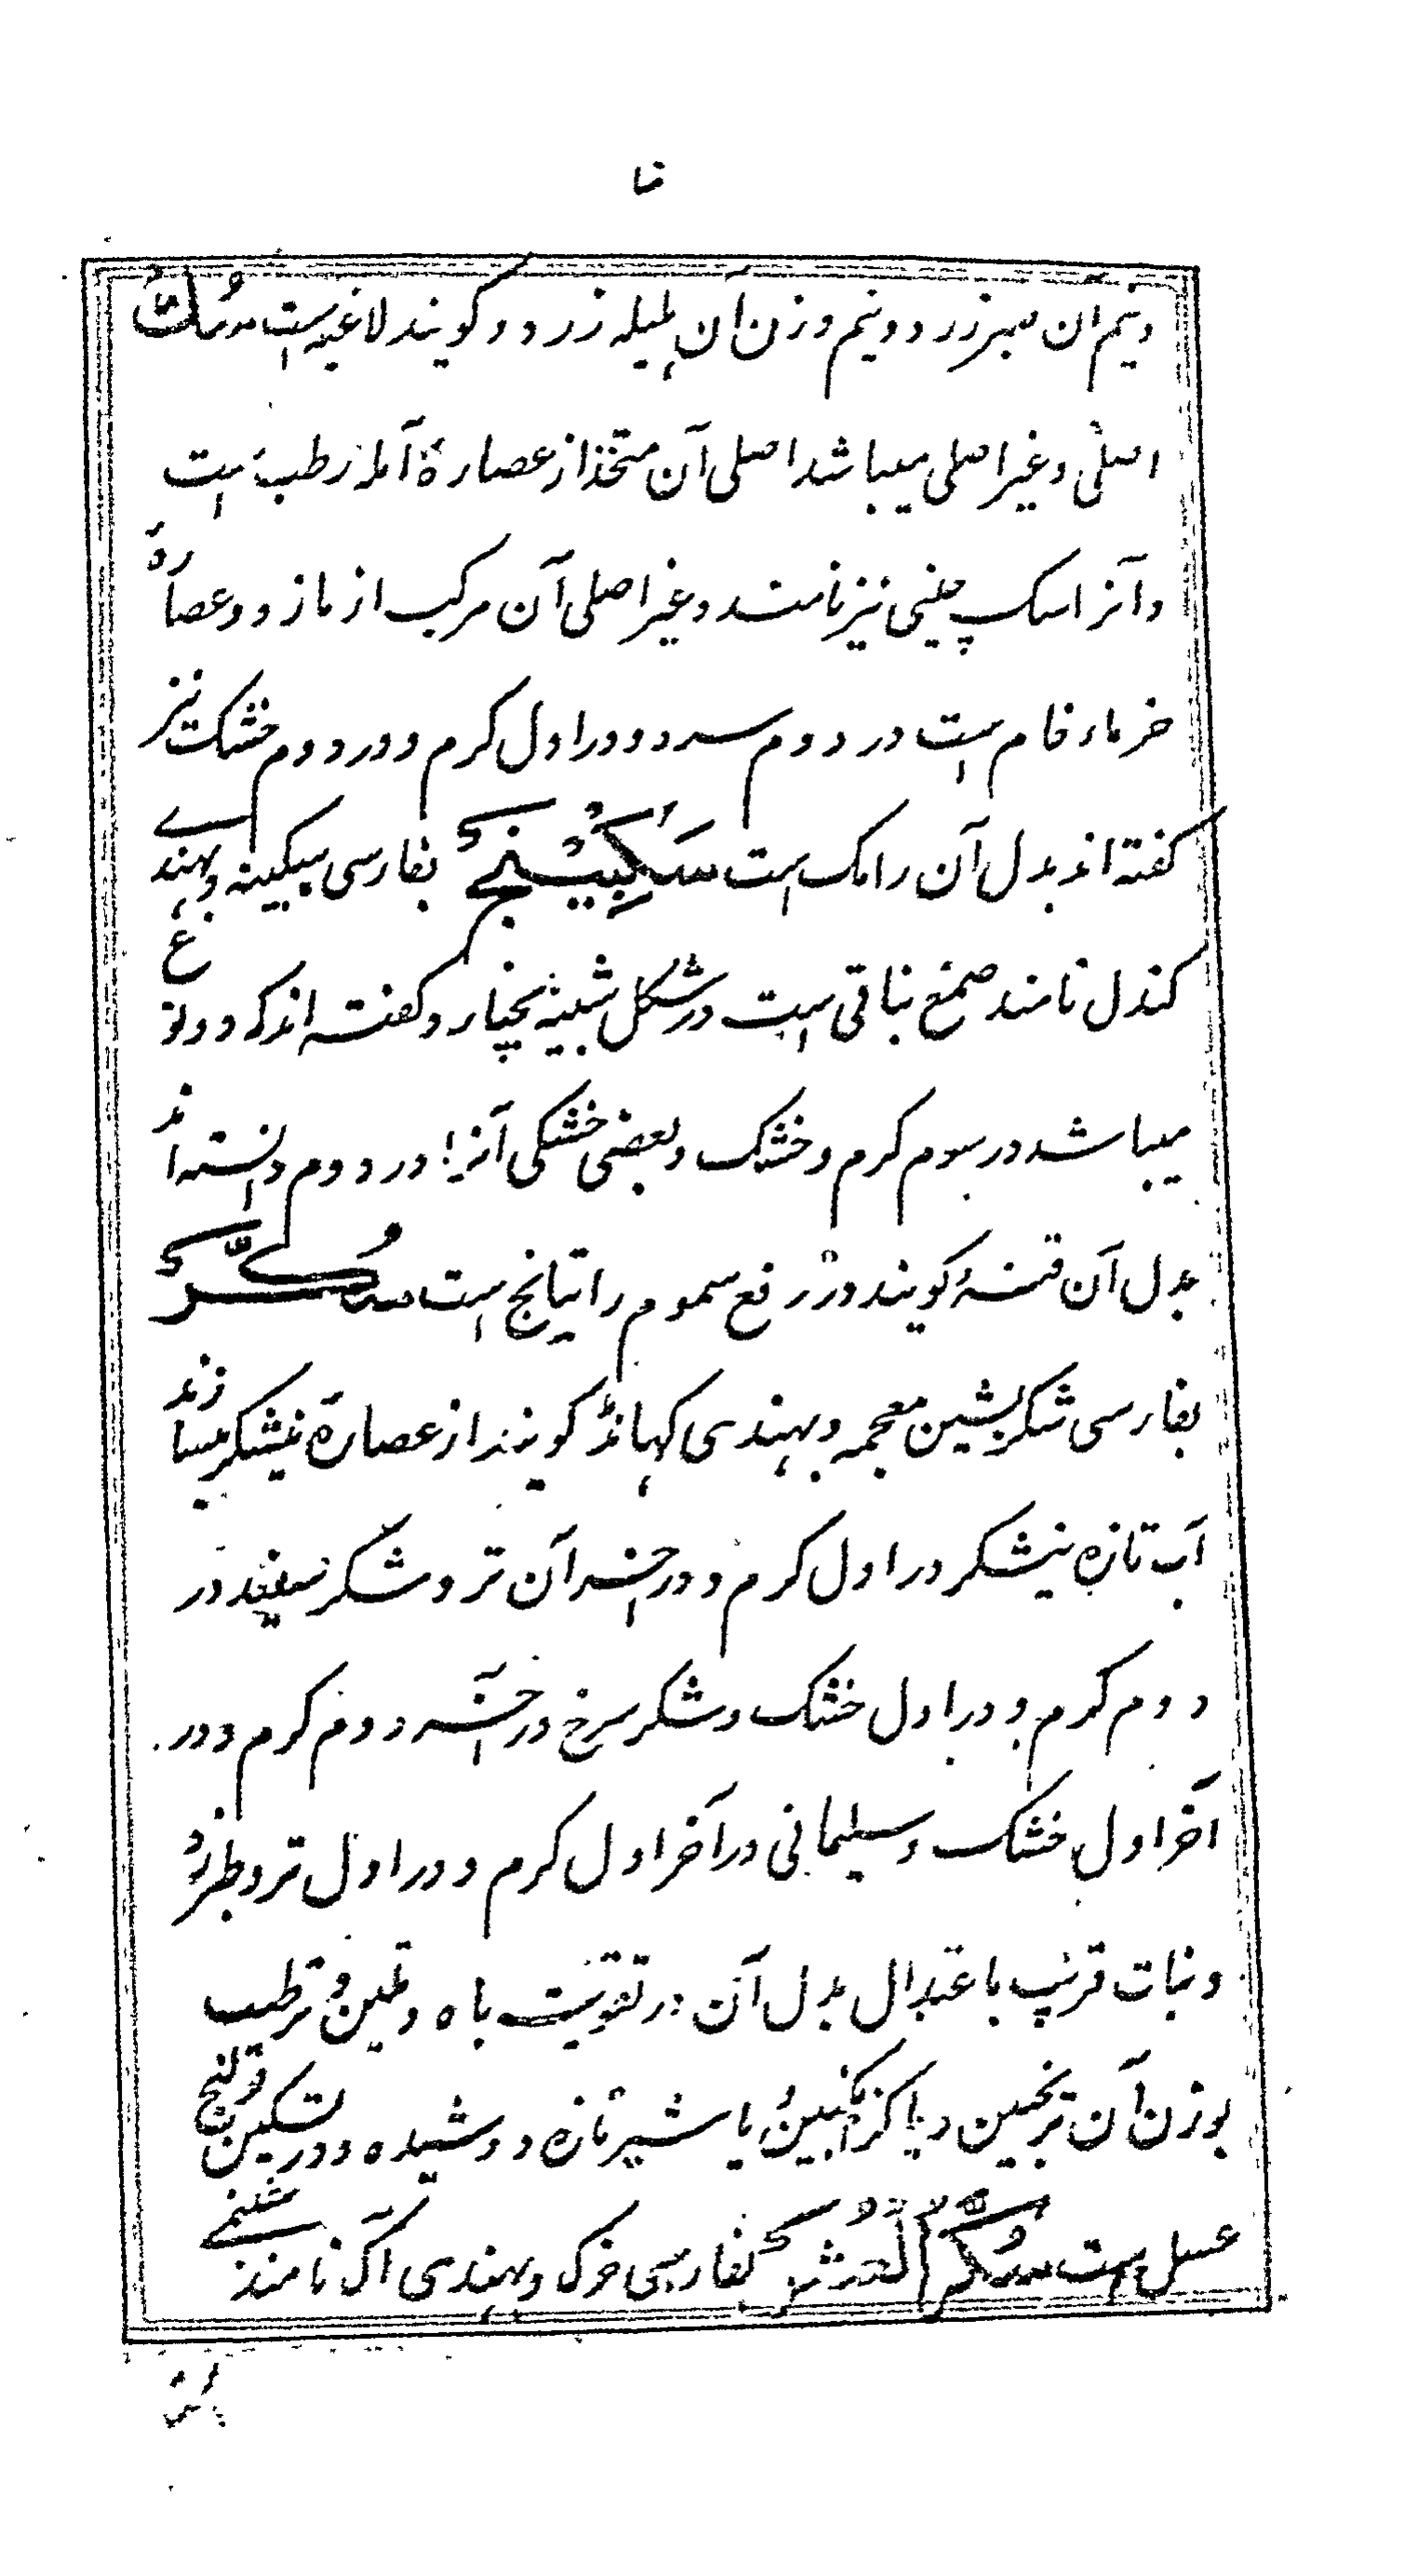 ونیم آن صبر زرد و نیم وزن آن هلیله زرد و گویند لاغیه است سُکّ
اصلی و غیر اصلی میباشد اصلی آن متخذ از عصارهٔ آمله رطب است
و آنرا سک چینی نیز نامند و غیر اصلی آن مرکب از مازو و عصارهٔ
خرماء خام است در دوم سرد و در اول گرم و در دوم خشک نیز
گفته اند بدل آن رامک است سَکبِینج بفارسی سکبینه و بهندے
کندل نامند صمغ نباتی است در شکل شبیه بخیار و گفته اند که دو نوع
میباشد در سوم گرم و خشک و بعضی خشکی آنرا در دوم دانسته اند
بدل آن قنه گویند و در رفع سموم راتیانج است سُکّر
بفارسی شکر بشین معجمه و بهندی کهانڈ گویند از عصارهٔ نیشکر میسازند
آب تازه نیشکر در اول گرم و در آخر آن تر و شکر سفید در
دوم گرم و در اول خشک و شکر سرخ در آخر دوم گرم و در
آخر اول خشک و سلیمانی در آخر اول گرم و در اول تر و طبرزد
و نبات قریب باعتدال بدل آن در تقویت باه و تلیین و ترطیب
بوزن آن ترنجبین و یا گزانگبین یا شیر تازه دوشیده و در تسکین قولنج
عسل است سُکّر العُشَر بفارسی خرک و بهندی آک نامند شبنمے